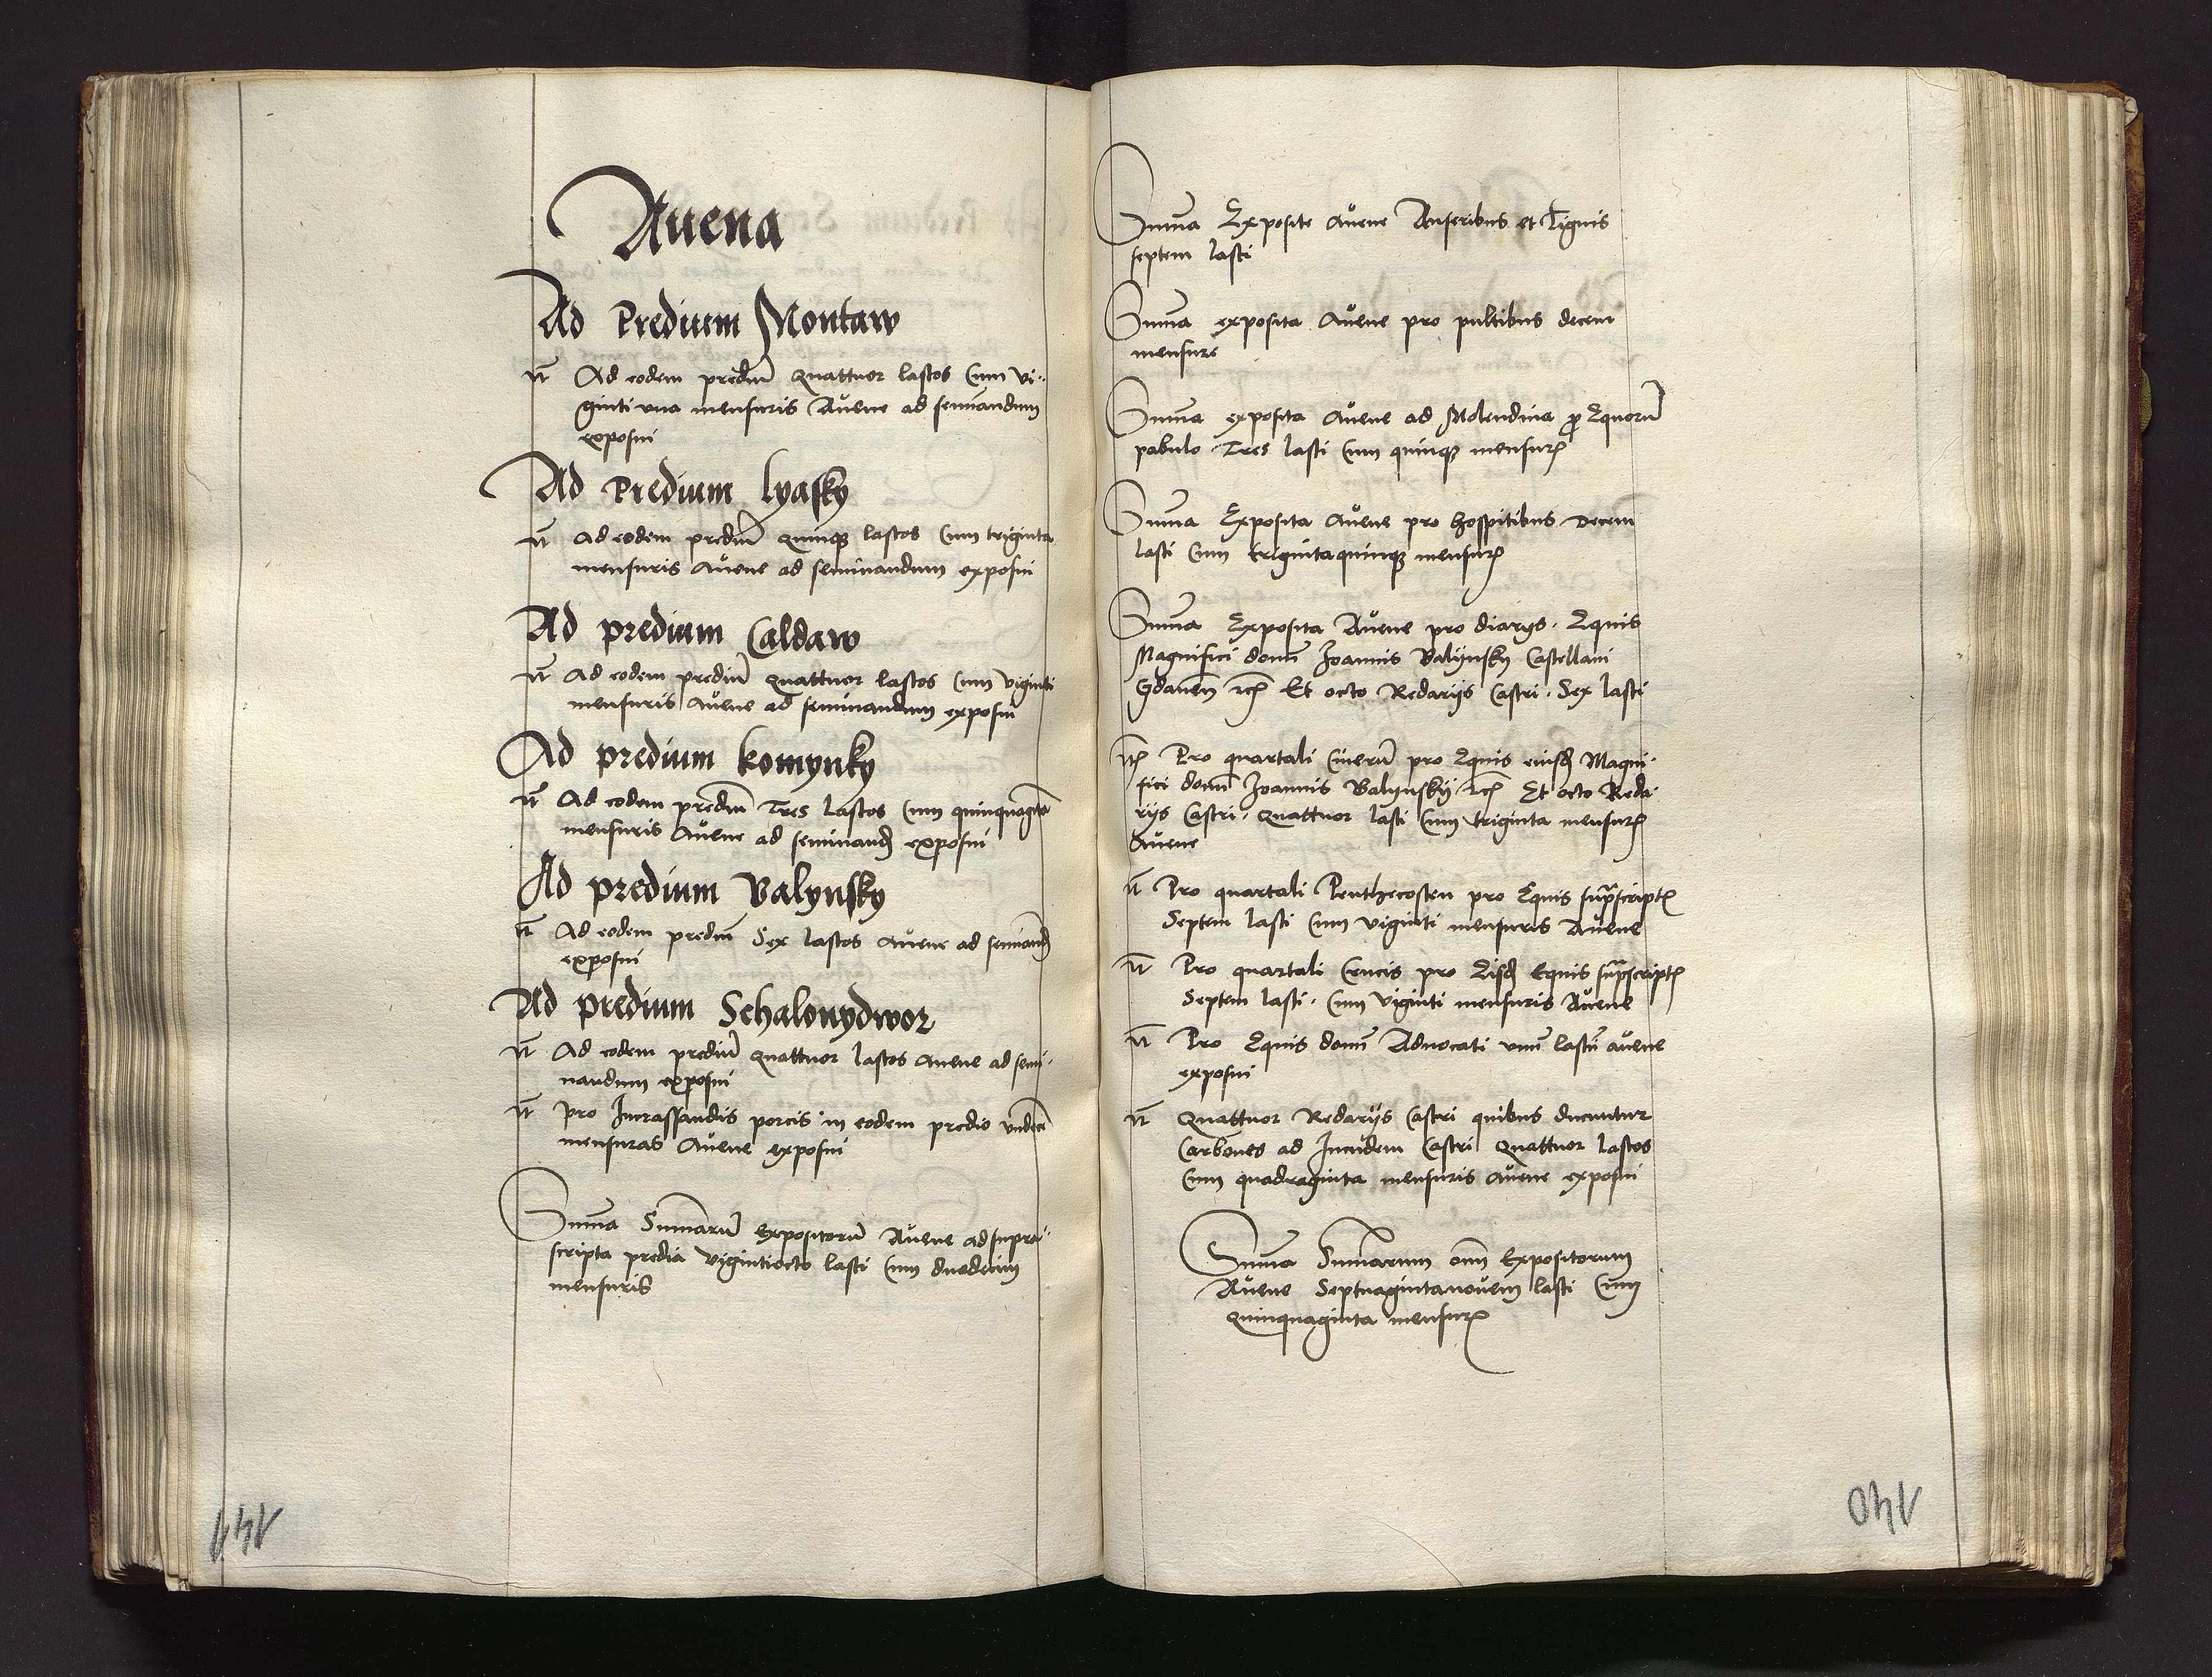 Auena
Ad Predium Montaw
Ad eodem prediũ quattuor lastos cum vi-
ginti una mensuris Auene ad seminandum
exposui
Ad Predium lyasky
Ad eodem prediũ quinqз lastos cum triginta
mensuris Auene ad seminandum exposui
Ad predium Caldaw
Ad eodem prediũ quattuor lastos cum viginti
mensuris Auene ad seminandum exposui
Ad predium komynky
Ad eodem prediũ Tres lastos cum
mensuris Auene ad exposui
Ad predium Balynsky
Ad eodem prediũ Sex lastos Auene ad
exposui
Ad predium Schalonydwor
Ad eodem prediũ quattuor lastos Auene ad semi-
nandum exposui
pro Incrassandis porcis in eodem predio
mensuras Auene exposui
Suma Sumarũ expositorũ Auene ad supra-
scripta predia vigintiocto lasti cum duodecim
mensuris
141
Suma Exposite Auene Anseribus et
septem lasti
Suma exposita Auene pro pultibus decem
mensure
Suma exposita Auene ad Molendina ꝓ Equorũ
pabulo Tres lasti cum quinqз
Suma Exposita Auene pro hospitibus Decem
lasti cum trigintaquinqз
Suma Exposita Auene pro diarys. Equis
Magnifici Joannis Balynsky Castellani
Et octo Redarijs Castri. Sex lasti
Pro quartali Cinerũ pro Equis Magni-
fici Joannis Balynsky Et octo Reda-
rijs Castri. quattuor lasti cum triginta
Auene
Pro quartali Penthecosten pro Equis
Septem lasti cum viginti mensuris Auene
Pro quartali Crucis pro Equis
Septem lasti. cum viginti mensuris Auene
Pro Equis Aduocati unũ lastũ auene
exposui
Quattuor Redarijs Castri quibus ducuntur
Carbones ad Incudem Castri quattuor lastos
cum quadraginta mensuris Auene exposui
Suma Sumarum Expositorum
Auene Septuagintanouem lasti cum
quinquaginta
140